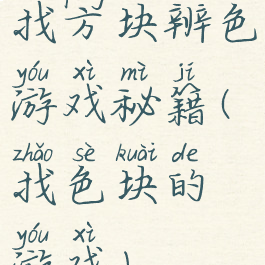 找方块辨色
yóu xì mì jí
游戏秘籍(
zhǎo sè kuài de
找色块的
yóu xì
游戏)